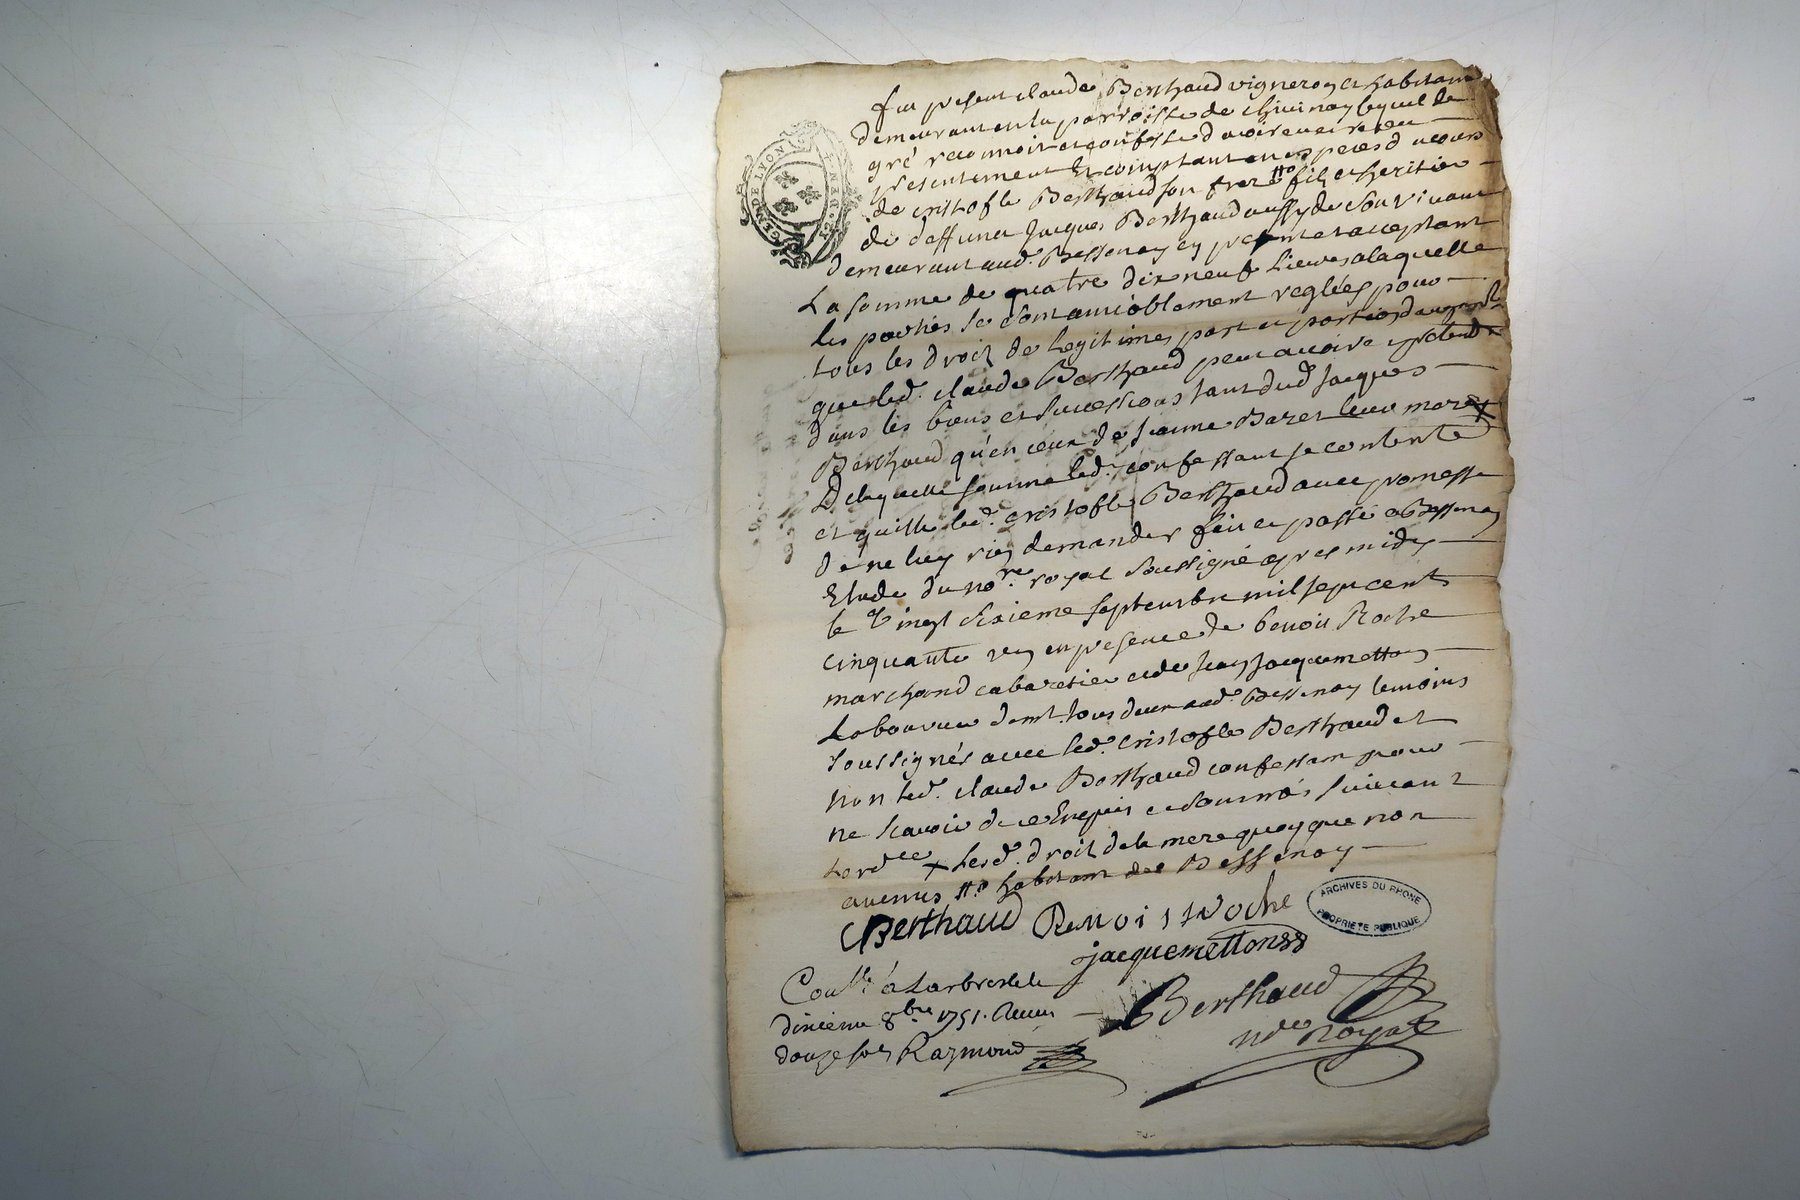 fut present claude Berthaud vigneron et habitant
demeurant en la parroisse de chivinay lequel de
gré reconnoit et confesse d'avoir eu et receu
presentement et comptant en especes d'cours
de cristofle Berthaud son frere #o fils et heritier
de deffunct Jacques Berthaud aussy de son vivant
demeurant aud. Bessenay cy present et acceptant
La somme de quatre dix neuf Livres a laquelle
les parties se sont amiablement reglées pour
tous les droit de legitimes part et portion
que led. claude Berthaud peut avoir et pretendre
dans les biens et successions tant dud Jacques
Berthaud qu'en ceux de Jeanne Bazet leur mere x
De laquelle somme led. confessant se contente
et quitte led. cristofle Berthaud avec promesse
de ne luy rien demander fait et passé a Bessenay
Etude du nore. royal soussigné apres midy
le vingt sixieme septembre mil sept cents
cinquante un en presence de benoit Roche
marchand cabaretier et de Jean Jacquemetton
Laboureur demt. tous deux aud. Bessenay temoins
soussignés avec led. cristofle Berthaud et
non led. claude Berthaud confessant pour
ne scavoir de ce Enquis et sommés suivant
Lordce x Lesd. droit de la mere quoyque non
avenus #o habitant de Bessenay
Berthaud Benoit Roche
ARCHIVES DU RHONE
PROPRIETE PUBLIQUE
jacquemetton
Conllé a Larbresle le
dixieme 8bre 1751. Receu
douze sols Raymond
Berthaud
nre Royal